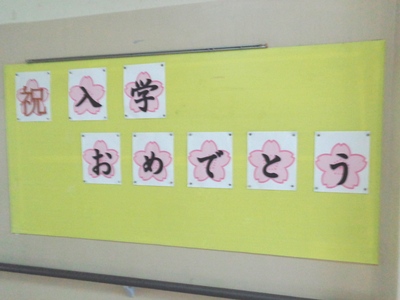 祝入学
おめでとう